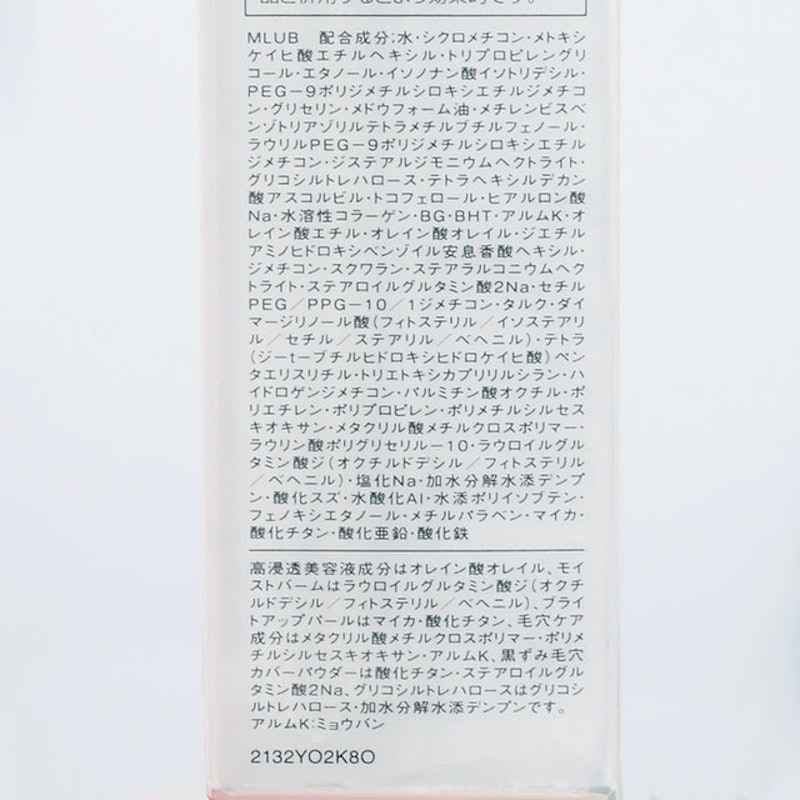 MLUB　配合成分:水・シクロメチコン・メトキシ
ケイヒ酸エチルヘキシル・トリプロピレングリ
コール・エタノール・イソノナン酸イソトリデシル・
PEG－9ポリジメチルシロキシエチルジメチコ
ン・グリセリン・メドウフォーム油・メチレンビスベ
ンゾトリアゾリルテトラメチルブチルフェノール・
ラウリルPEG－9ポリジメチルシロキシエチル
ジメチコン・ジステアルジモニウムヘクトライト・
グリコシルトレハロース・テトラヘキシルデカン
酸アスコルビル・トコフェロール・ヒアルロン酸
Na・水溶性コラーゲン・BG・BHT・アルムK・オ
レイン酸エチル・オレイン酸オレイル・ジエチル
アミノヒドロキシベンゾイル安息香酸ヘキシル・
ジメチコン・スクワラン・ステアラルコニウムヘク
トライト・ステアロイルグルタミン酸2Na・セチル
PEG／PPG－10／1ジメチコン・タルク・ダイ
マージリノール酸（フィトステリル／イソステアリ
ル／セチル／ステアリル／ベヘニル）・テトラ
（ジーtーブチルヒドロキシヒドロケイヒ酸）ペン
タエリスリチル・トリエトキシカプリリルシラン・ハ
イドロゲンジメチコン・パルミチン酸オクチル・ポ
リエチレン・ポリプロピレン・ポリメチルシルセス
キオキサン・メタクリル酸メチルクロスポリマー・
ラウリン酸ポリグリセリル－10・ラウロイルグル
タミン酸ジ（オクチルドデシル／フィトステリル
／ベヘニル）・塩化Na・加水分解水添デンプ
ン・酸化スズ・水酸化Al・水添ポリイソブテン・
フェノキシエタノール・メチルパラベン・マイカ・
酸化チタン・酸化亜鉛・酸化鉄
高浸透美容液成分はオレイン酸オレイル、モイ
ストバームはラウロイルグルタミン酸ジ（オクチ
ルドデシル／フィトステリル／ベヘニル）、ブライ
トアップパールはマイカ・酸化チタン、毛穴ケア
成分はメタクリル酸メチルクロスポリマー・ポリメ
チルシルセスキオキサン・アルムK、黒ずみ毛穴
カバーパウダーは酸化チタン・ステアロイルグル
タミン酸2Na、グリコシルトレハロースはグリコシ
ルトレハロース・加水分解水添デンプンです。
アルムK:ミョウバン
2132YO2K8O